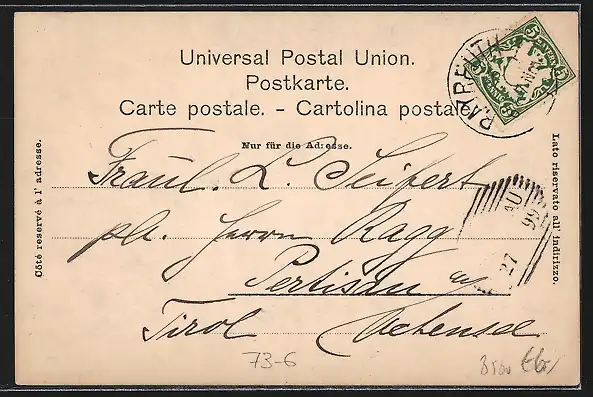 Universal Postal Union.
Postkarte.
Carte postale. - Cartolina postale
Nur für die Adresse.
Côté reservé à l' adresse.
Lato riservato all' indirizzo.
BAYREUTH
Fräul. L. Seifert
pr. Herrn Ragg
Pertisau a/
Tirol Achensee
AU
99
27
73-6